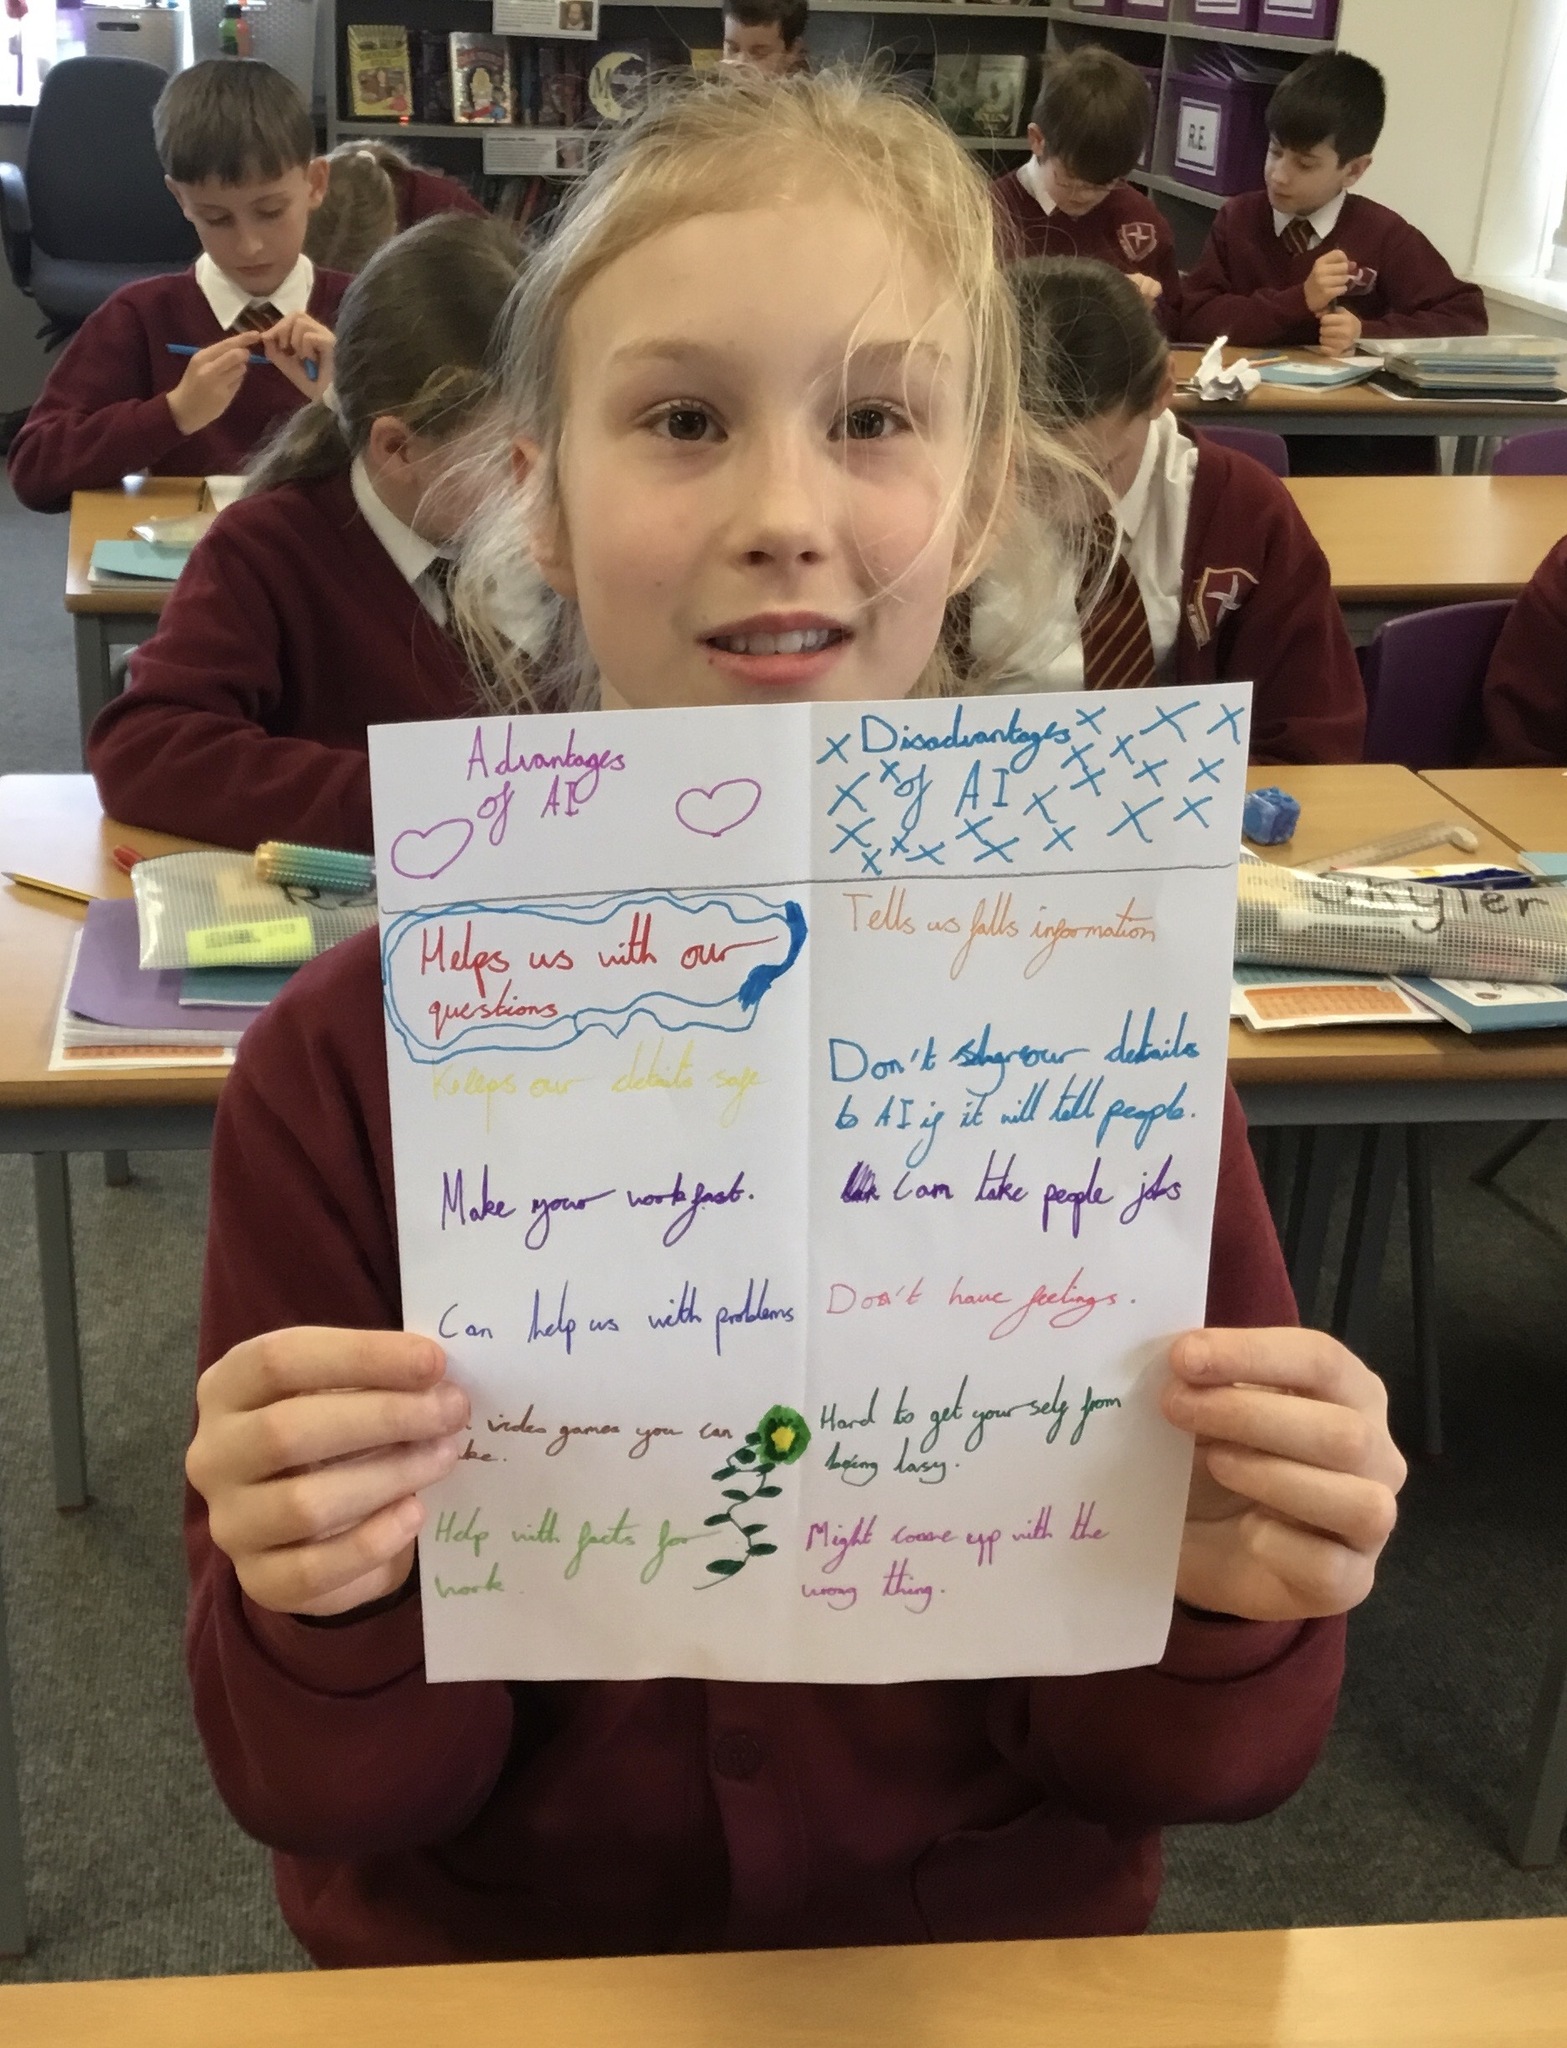 R.E.
Advantages
of AI
Helps us with our
questions
Keeps our details safe
Make your work fast.
Can help us with problems
video games you can
ke.
Help with facts for
work.
Disadvantages
of AI
Tells us falls information
Don't our details
to AI if it will tell people.
Can take people jobs
Don't have feelings.
Hard to get your self from
being lasy.
Might come up with the
wrong thing.
Skyler